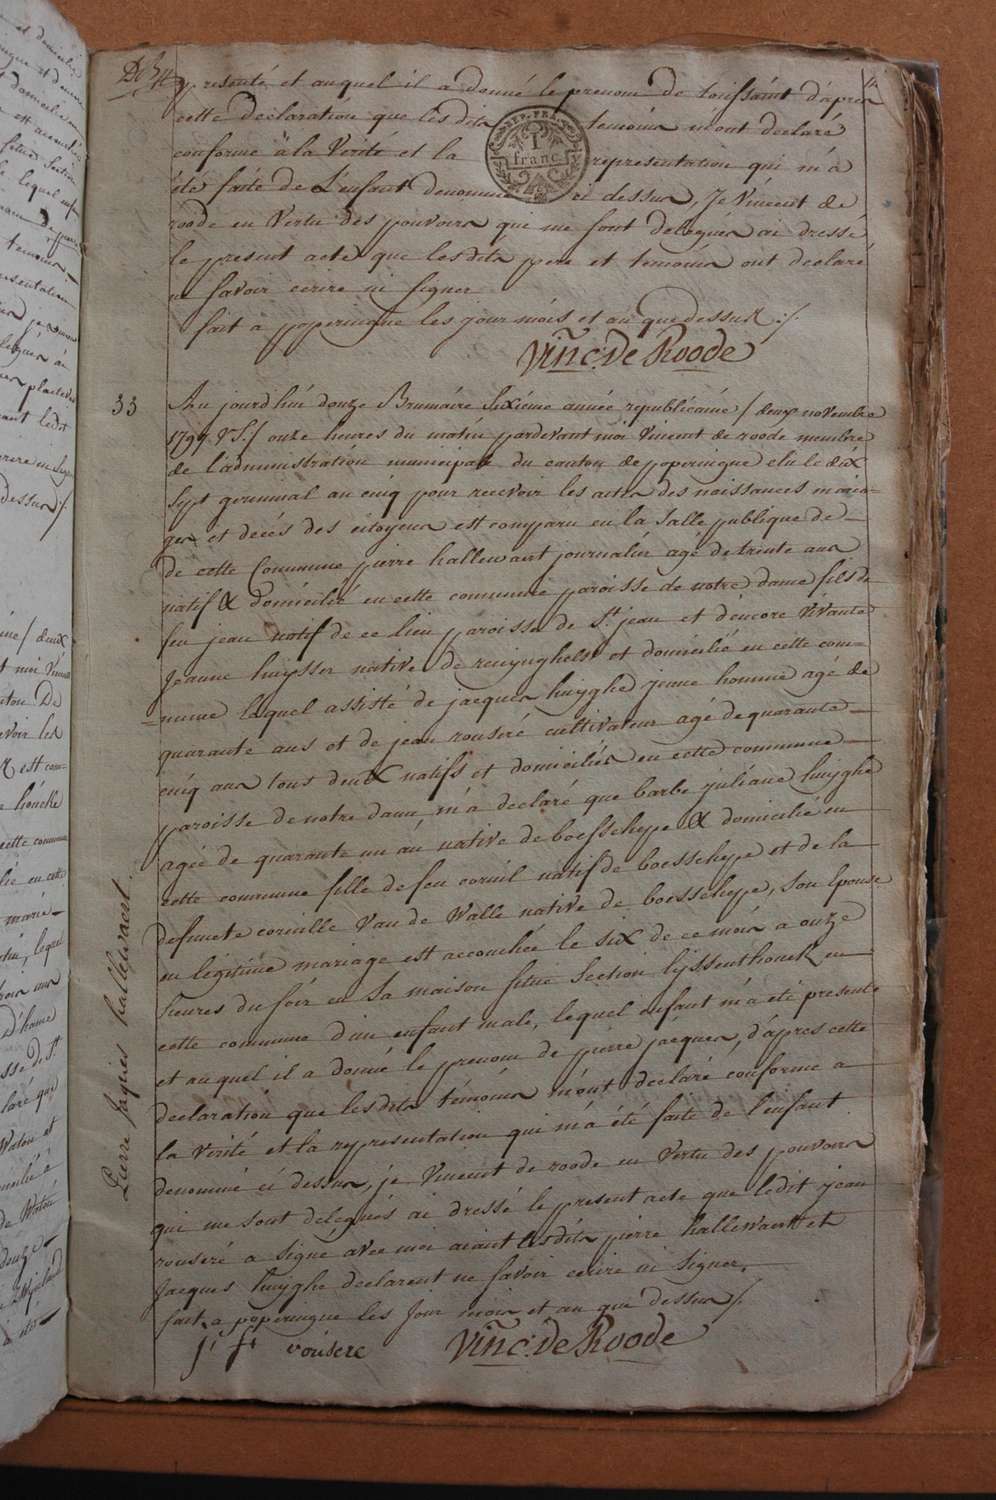 presenté et auquel il a donné le prenom de toussaint d'apres
cette declaration que lesdits temoins m'ont declaré
REP. FRA.
1
franc
conforme a la Verité et la representation qui m'a
été faite de L'enfant denommé ci dessus, Je Vincent de
roode en Vertu des pouvoirs que me sont delegués ai dressé
le present acte que lesdits pere et temoins ont declaré
ne savoir ecrire ni signer
fait a poperingue les jour mois et an que dessus ./.
Vinc: De Roode
33
Au jourd'hui douze Brumaire Sixieme année republicaine / deux novembre
1797 VS./ onze heures du matin pardevant moi Vincent de roode membre
de l'administration municipale du canton de poperingue elu le dix
sept germinal an cinq pour recevoir les actes des naissances maria-
ges et decés des citoyens est comparu en la Salle publique de
de cette Commune pierre hallewaert journalier agé de trente ans
natif & domicilié en cette commune paroisse de notre dame fils de
feu jean natif de ce lieu paroisse de St. jean et d'encore Vivante
Jeanne huysser native de reninghelst et domicilié en cette com-
=mune lequel assisté de jacques huyghe jeune homme agé de
quarante ans et de jean rouseré cultivateur agé de quarante
cinq ans tous deux natifs et domiciliés en cette commune
paroisse de notre dame, m'a declaré que barbe juliane huyghe
agée de quarante un an native de boesschepe & domicilié en
cette commune fille de feu cornil natif de boesschepe et de la
defuncte cornille Van de Walle native de boesschepe, son Epouse
en légitime mariage est accouchée le six de ce mois a onze
heures du soir en Sa maison située Section lyssenthouck en
cette commune d'un enfant male, lequel enfant m'a été presenté
et auquel il a donné le prenom de pierre jacques, d'apres cette
declaration que lesdits témoins m'ont declaré conforme a
la Verité et la representation qui m'a été faite de l'enfant
denommé ci dessus, je Vincent de roode en Vertu des pouvoirs
qui me sont delegués ai dressé le present acte que ledit jean
rouseré a signé avec moi aiant lesdits pierre hallewaert et
Jacques huyghe declarent ne savoir ecrire ni Signer.
fait a poperingue les Jour mois et an que dessus /.
Vinc: De Roode
Pierre Jaques hallewaert.